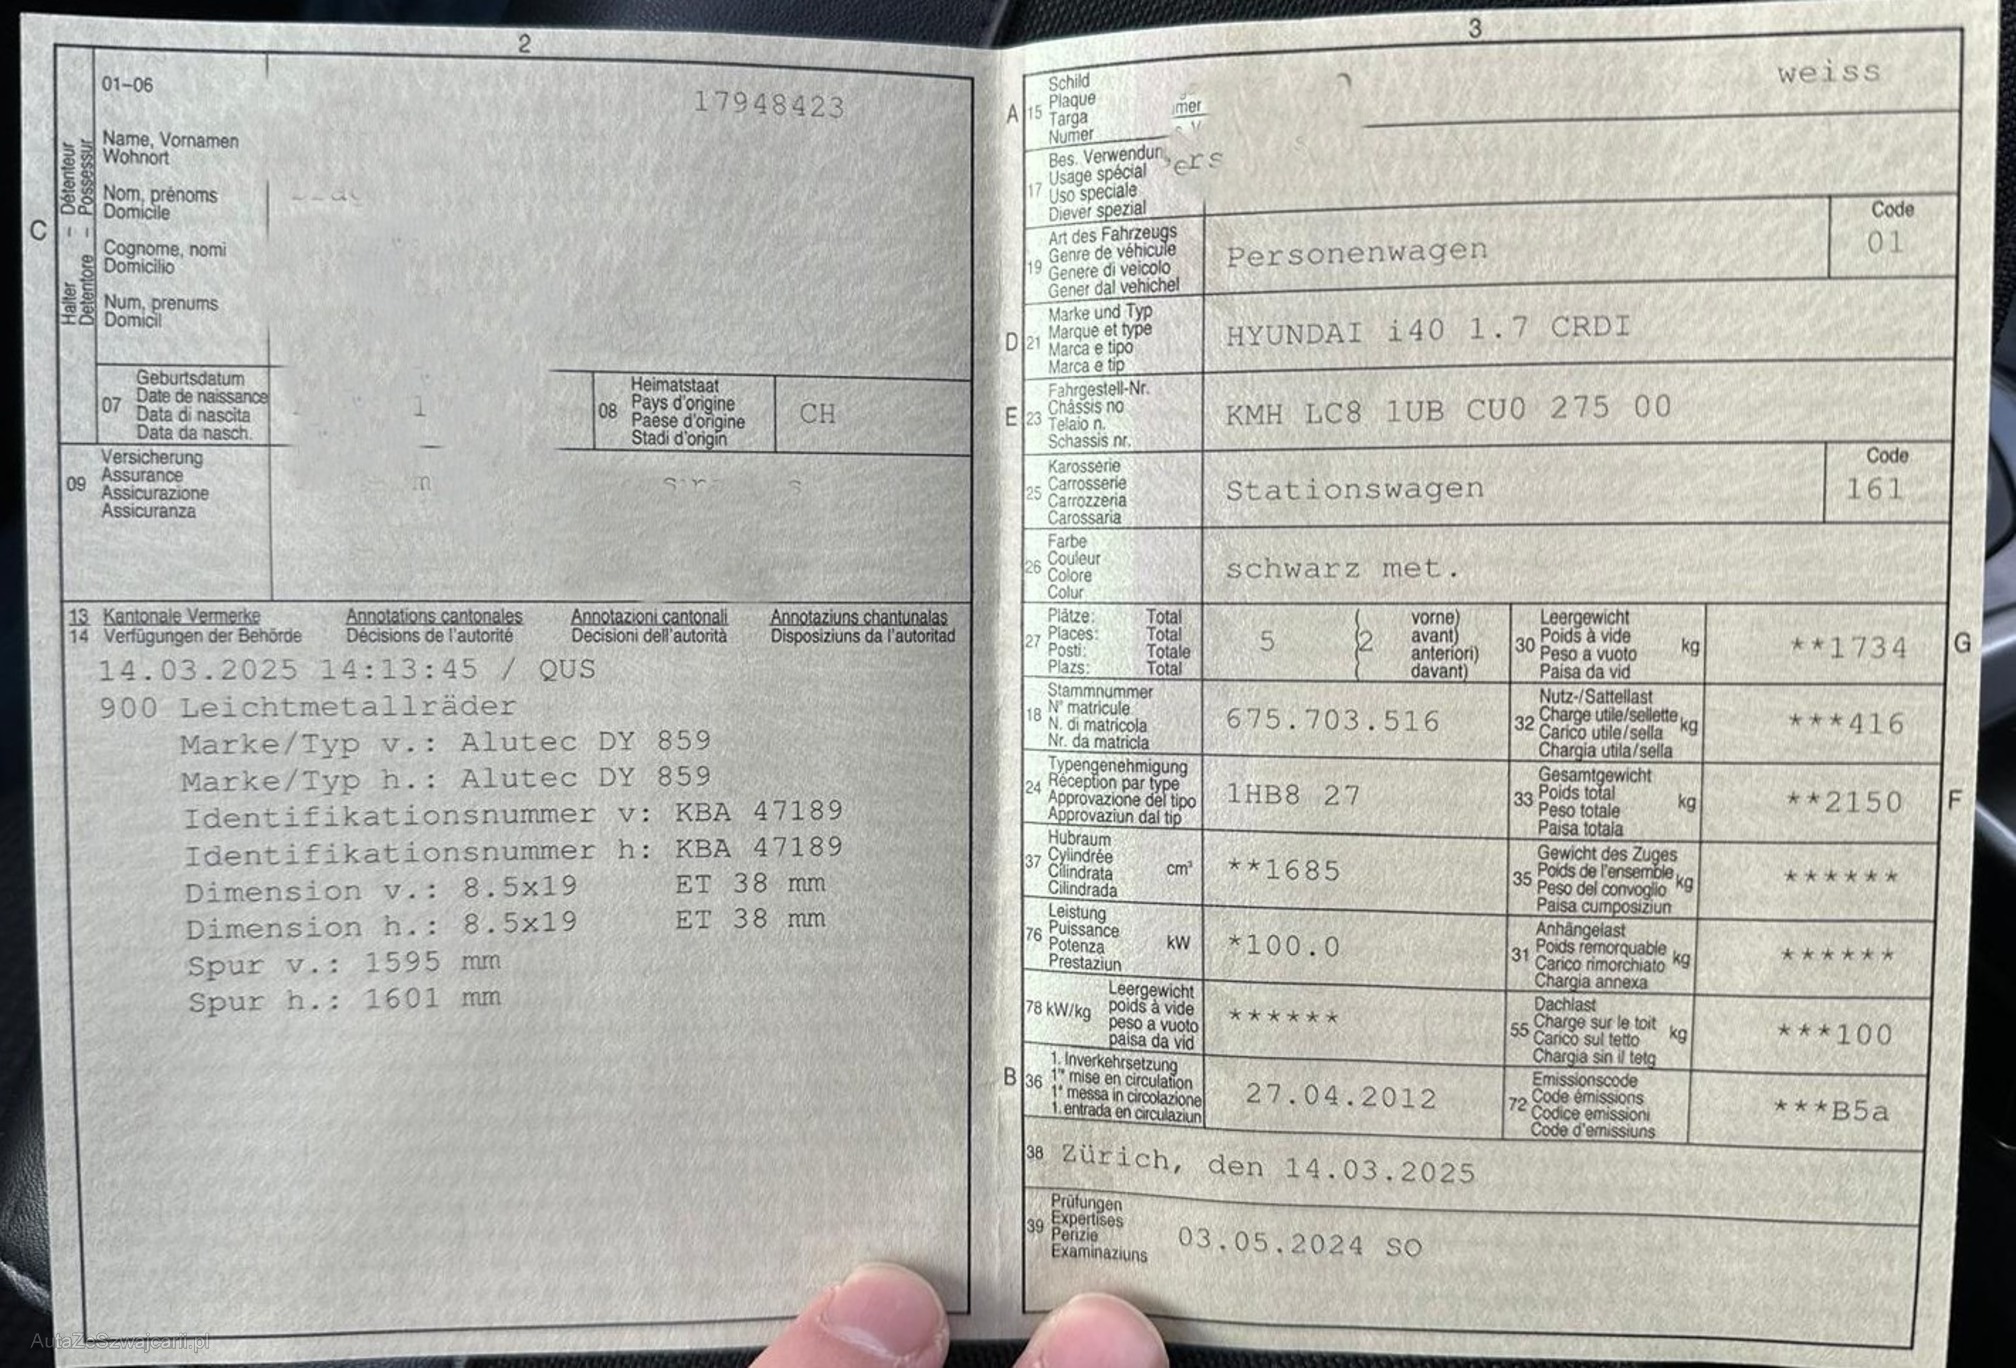 2
01–06
17948423
Halter – Détenteur
Detentore – Possessur
C
Name, Vornamen
Wohnort
Nom, prénoms
Domicile
Cognome, nomi
Domicilio
Num, prenums
Domicil
07
Geburtsdatum
Date de naissance
Data di nascita
Data da nasch.
1
08
Heimatstaat
Pays d'origine
Paese d'origine
Stadi d'origin
CH
09
Versicherung
Assurance
Assicurazione
Assicuranza
13 Kantonale Vermerke Annotations cantonales Annotazioni cantonali Annotaziuns chantunalas
14 Verfügungen der Behörde Décisions de l'autorité Decisioni dell'autorità Disposiziuns da l'autoritad
14.03.2025 14:13:45 / QUS
900 Leichtmetallräder
Marke/Typ v.: Alutec DY 859
Marke/Typ h.: Alutec DY 859
Identifikationsnummer v: KBA 47189
Identifikationsnummer h: KBA 47189
Dimension v.: 8.5x19 ET 38 mm
Dimension h.: 8.5x19 ET 38 mm
Spur v.: 1595 mm
Spur h.: 1601 mm
3
A 15
Schild
Plaque
Targa
Numer
weiss
17
Bes. Verwendun
Usage spécial
Uso speciale
Diever spezial
19
Art des Fahrzeugs
Genre de véhicule
Genere di veicolo
Gener dal vehichel
Personenwagen
Code
01
D 21
Marke und Typ
Marque et type
Marca e tipo
Marca e tip
HYUNDAI i40 1.7 CRDI
E 23
Fahrgestell-Nr.
Châssis no
Telaio n.
Schassis nr.
KMH LC8 1UB CU0 275 00
25
Karosserie
Carrosserie
Carrozzeria
Carossaria
Stationswagen
Code
161
26
Farbe
Couleur
Colore
Colur
schwarz met.
27
Plätze: Total
Places: Total
Posti: Totale
Plazs: Total
5
(2
vorne)
avant)
anteriori)
davant)
30
Leergewicht
Poids à vide
Peso a vuoto
Paisa da vid
kg
**1734
G
18
Stammnummer
N° matricule
N. di matricola
Nr. da matricla
675.703.516
32
Nutz-/Sattellast
Charge utile/sellette
Carico utile/sella
Chargia utila/sella
kg
***416
24
Typengenehmigung
Réception par type
Approvazione del tipo
Approvaziun dal tip
1HB8 27
33
Gesamtgewicht
Poids total
Peso totale
Paisa totala
kg
**2150
F
37
Hubraum
Cylindrée
Cilindrata
Cilindrada
cm³
**1685
35
Gewicht des Zuges
Poids de l'ensemble
Peso del convoglio
Paisa cumposiziun
kg
******
76
Leistung
Puissance
Potenza
Prestaziun
kW
*100.0
31
Anhängelast
Poids remorquable
Carico rimorchiato
Chargia annexa
kg
******
78 kW/kg
Leergewicht
poids à vide
peso a vuoto
paisa da vid
******
55
Dachlast
Charge sur le toit
Carico sul tetto
Chargia sin il tetg
kg
***100
B 36
1. Inverkehrsetzung
1re mise en circulation
1a messa in circolazione
1. entrada en circulaziun
27.04.2012
72
Emissionscode
Code émissions
Codice emissioni
Code d'emissiuns
***B5a
38 Zürich, den 14.03.2025
39
Prüfungen
Expertises
Perizie
Examinaziuns
03.05.2024 SO
AutaZeSzwajcarii.pl